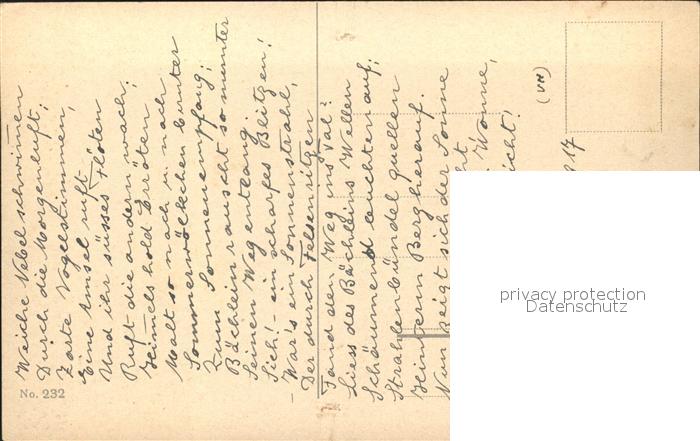 Weiche Nebel schwimmen
Durch die Morgenluft;
Zarte Vogelstimmen,
Eine Amsel ruft.
Und ihr süsses Flöten
Ruft die andern wach;
Himmels hold Erröten
Malt so nach u. nach
Sommerwölkchen bunter
Zum Sonnenempfang;
Bächlein rauscht so munter
Seinen Weg entlang.
Sieh! - ein scharfes Blitzen!
- War's ein Sonnenstrahl,
Der durch Felsenritzen
Fand den Weg ins Tal?
Liess des Bächleins Wellen
Schäumend leuchten auf;
Strahlenbündel quellen
Hinterm Berg herauf.
Nun zeigt sich der Sonne
Wonne,
(VH)
17
No. 232
privacy protection
Datenschutz